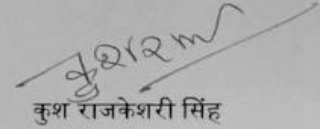 कुश राजकेशरी सिंह